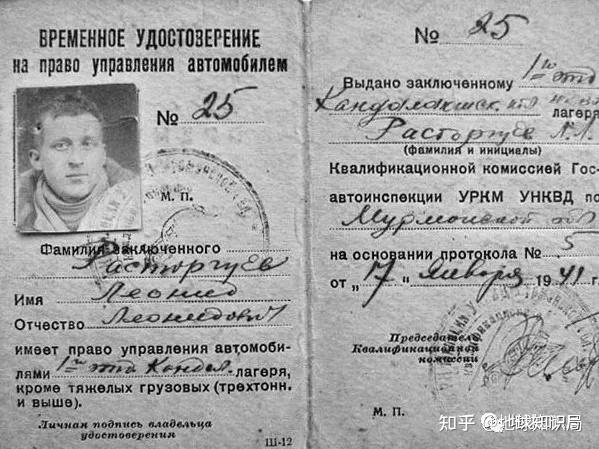 ВРЕМЕННОЕ УДОСТОВЕРЕНИЕ
на право управления автомобилем
№ 25
М. П.
Фамилия заключенного
Расторгуев
Имя Леонид
Отчество Леонидович
имеет право управления автомоби-
лями 1го этд Кандал. лагеря,
кроме тяжелых грузовых (трехтонн.
и выше).
Личная подпись владельца
удостоверения
Ш-12
№ 25
Выдано заключенному 1го этд
Кандалакшск лагеря
Расторгуев Л. Л.
(фамилия и инициалы)
Квалификационной комиссией Гос-
автоинспекции УРКМ УНКВД по
Мурманской обл
на основании протокола № 5
от „17" января 1941 г.
Председатель
Квалификационной
комиссии
М. П.
知乎 @地球知识局